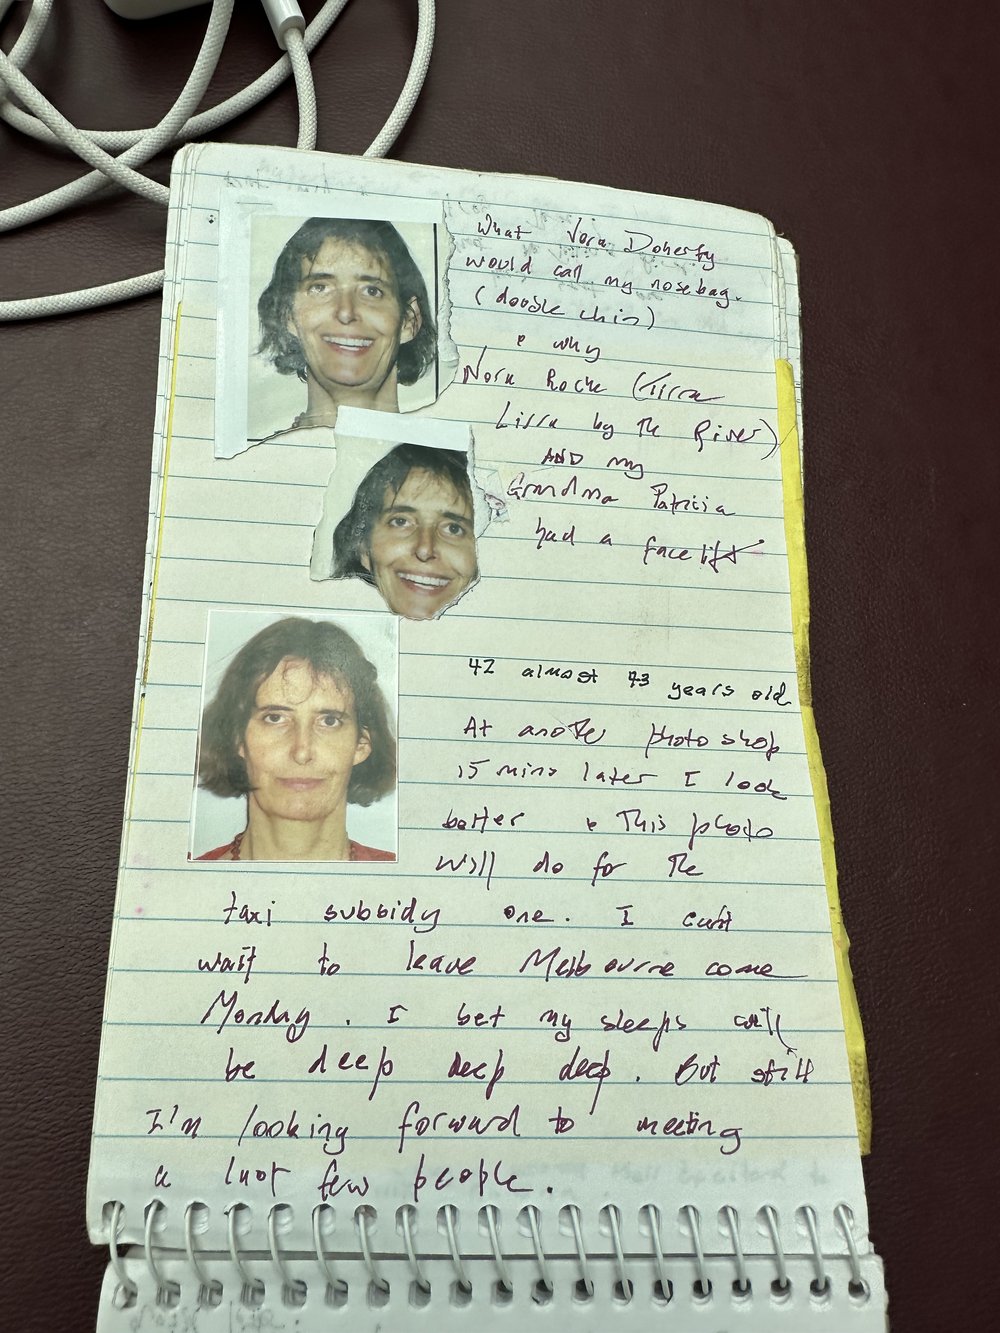 What Nora Doherty
would call my nosebag.
(double chin)
& why
Nora Roche (Lirra
Lirra by the River)
AND my
Grandma Patricia
had a facelift
42 almost 43 years old
At another photo shop
15 mins later I look
better & This photo
will do for the
taxi subsidy one. I can't
wait to leave Melbourne come
Monday. I bet my sleeps will
be deep deep deep. But still
I'm looking forward to meeting
a last few people.